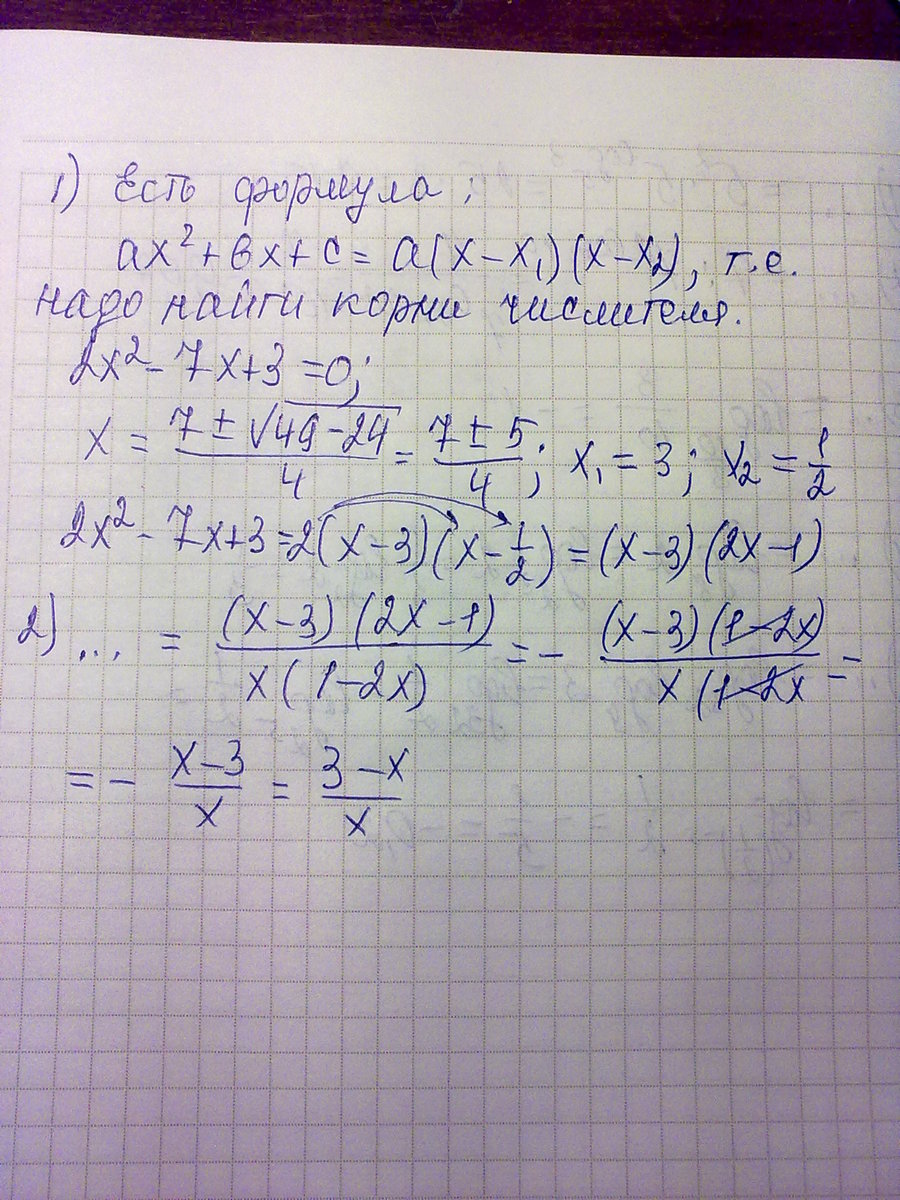 1) Есть формула:
ax² + bx + c = a(x - x₁)(x - x₂), т.е.
надо найти корни числителя.
2x² - 7x + 3 = 0;
x = (7 ± √(49 - 24))/4 = (7 ± 5)/4; x₁ = 3; x₂ = 1/2
2x² - 7x + 3 = 2(x - 3)(x - 1/2) = (x - 3)(2x - 1)
2) ... = ((x - 3)(2x - 1))/(x(1 - 2x)) = - ((x - 3)(1 - 2x))/(x(1 - 2x) =
= - (x - 3)/x = (3 - x)/x